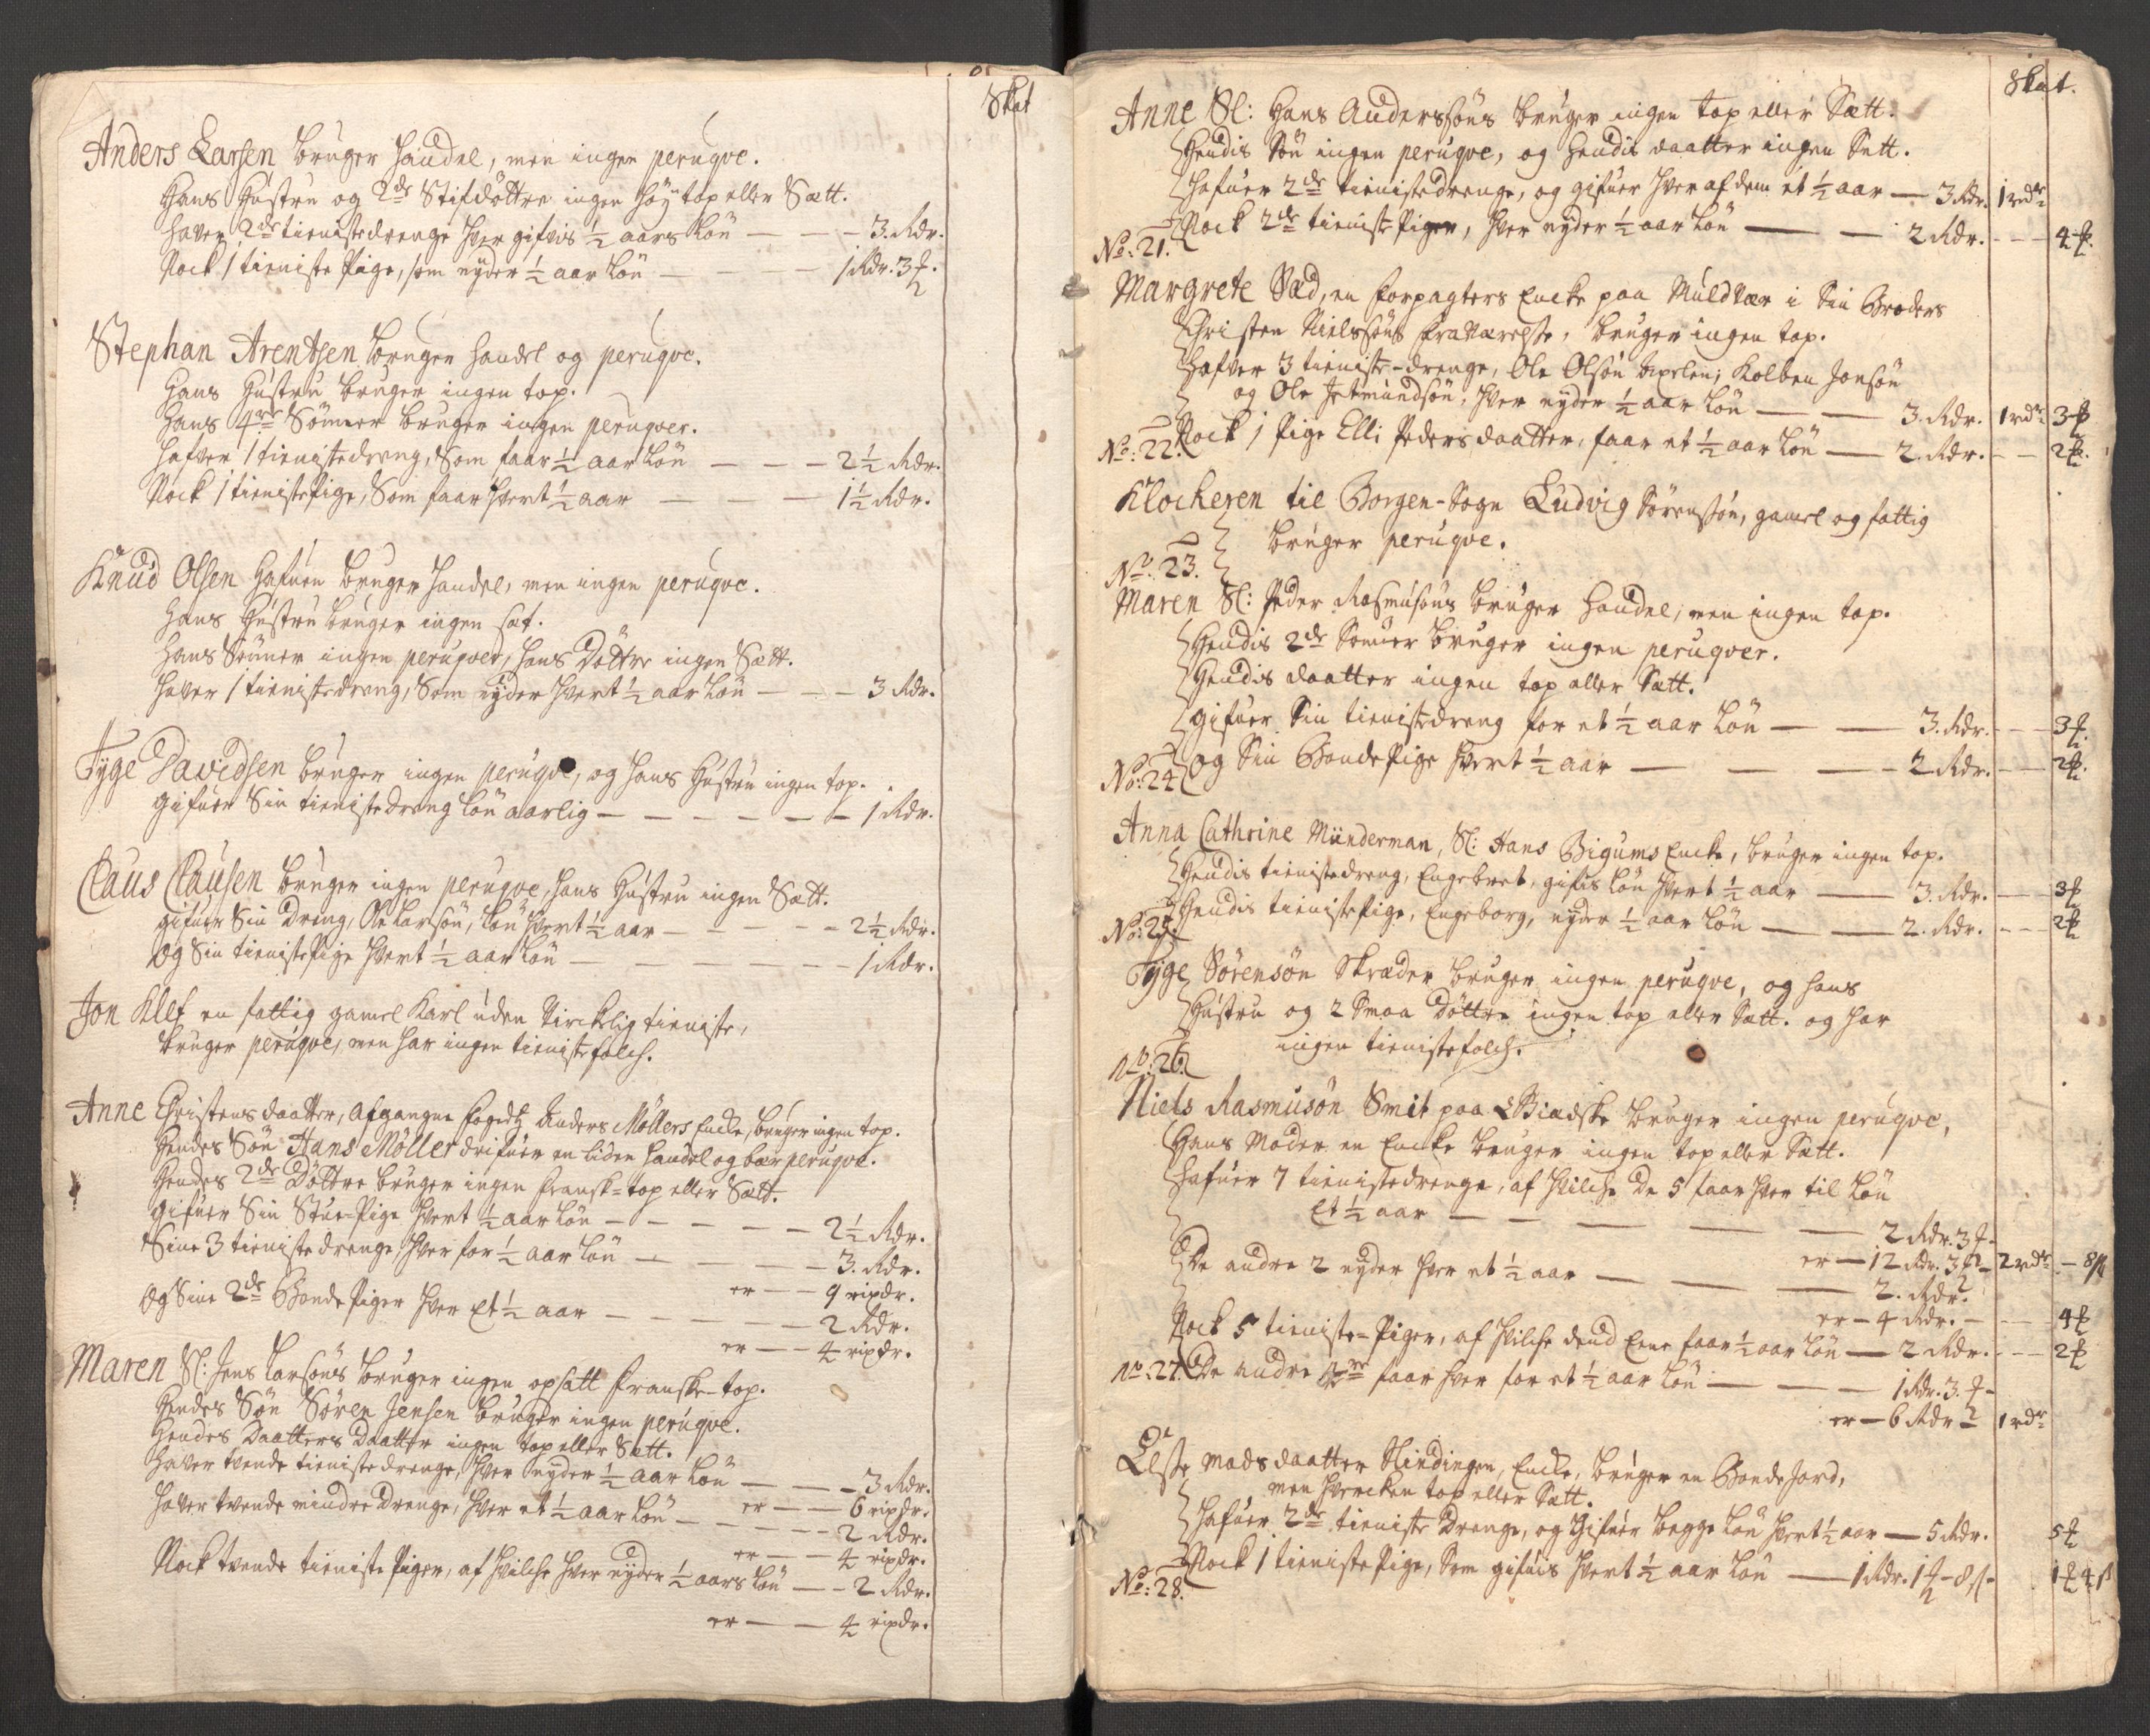 Skat
Anders Larsen bruger handel, men ingen peruqve.
Hans Hustru og 2de Stifdöttre ingen höy top eller Sætt.
haver 2de tienistedrenge hver gifvis ½ aars Lön — — — 3. Rdr.
Nock 1 tieniste Pige, som nyder ½ aar Lön — — — — 1 Rdr. 3 ƶ.
Stephan Arentsen bruger handel og peruqve.
Hans Hustru bruger ingen top.
Hans 4re Sönner bruger ingen peruqver.
hafver 1 tienistedreng, Som faar ½ aar Lön — — — 2½ Rdr.
Nock 1 tienistePige, Som faar hvert ½ aar — — — 1½ Rdr.
Knud Olsen Hafuen bruger handel, men ingen peruqve.
Hans Hustru bruger ingen sat.
Hans Sönner ingen peruqver, hans Döttre ingen Sætt.
haver 1 tienistedreng, Som nyder hvert ½ aar Lön — — — 3 Rdr.
Tyge Davidsen bruger ingen peruqve, og hans Hustru ingen top.
gifuer Sin tienistedreng Lön aarlig — — — — — — 1 Rdr.
Claus Clausen bruger ingen peruqve, hans Hustru ingen Sætt.
gifuer Sin Dreng, Ole Larsön, Lön hvert ½ aar — — — — — 2½ Rdr.
Og Sin tienistePige hvert ½ aar Lön — — — — — — 1 Rdr.
Jon Klef en fattig gamel Karl uden Virckelig tieniste,
bruger peruqve, men har ingen tienistefolch.
Anne Christensdaatter, afgangne fogedtz Anders Möllers Encke, bruger ingen top.
Hendes Sön Hans Möller drifuer en liden handel og bær peruqve.
Hendes 2de Döttre bruger ingen fransk-top eller Sætt.
gifuer Sin Stue-Pige hvert ½ aar Lön — — — — — 2½ Rdr.
Sine 3 tienistedrenge, hver for ½ aar Lön — — — — 3. Rdr.
er — — 9 rixdr.
Og Sine 2de BondePiger hver Et ½ aar — — — — — 2 Rdr.
er — — 4 rixdr.
Maren Sl: Jens Larsöns bruger ingen opsatt franske-top.
Hendes Sön Sören Jensen bruger ingen peruqve.
Hendes Daatters Daatter ingen top eller Sætt.
Haver tvende tienistedrenge, hver nyder ½ aar Lön — — — 3 Rdr.
er — — 6 rixdr.
Haver tvende mindre Drenge, hver et ½ aar Lön — — — — 2 Rdr.
er — — 4 rixdr.
Nock tvende tieniste Piger, af hvilche hver nyder ½ aars Lön — — 2 Rdr.
er — — 4 rixdr.
Skat.
Anne Sl: Hans Anderssöns bruger ingen top eller Sætt.
Hendis Sön ingen peruqve, og hendis daatter ingen Sætt.
hafuer 2de tienistedrenge, og gifuer hver af dem et ½ aar — 3 Rdr. 1 rdr
Nock 2de tieniste Piger, hver nyder ½ aar Lön — — 2 Rdr. — — 4 ƶ.
No: 21.
Margrete Sæd, en forpagters Encke paa Muldvær i Sin Broders
Christen Nielssöns fraværelse, bruger ingen top.
Hafver 3 tieniste-drenge, Ole Olsön Axelen, Kolben Jonsön
og Ole Jetmundsön, hver nyder ½ aar Lön — — 3. Rdr. 1 rdr 3 ƶ
Nock 1 Pige Elli Pedersdaatter, faar et ½ aar Lön — 2. Rdr. — — 2 ƶ.
No: 22.
Klockeren til Borgen-Sogn Ludvig Sörensön, gamel og fattig
bruger peruqve.
No: 23.
Maren Sl: Peder Rasmusöns bruger handel, men ingen top.
Hendis 2de Sönner bruger ingen peruqver.
Hendis daatter ingen top eller Sætt.
gifuer Sin tienistedreng for et ½ aar Lön — — 3. Rdr. — — 3 ƶ.
og Sin BondePige hvert ½ aar — — — 2 Rdr. — — 2 ƶ.
No: 24
Anna Cathrine Münderman, Sl: Hans Bigums Encke, bruger ingen top.
Hendis tienistedreng, Engebret, gifuis Lön hvert ½ aar — 3. Rdr. — — 3 ƶ
Hendis tienistePige, Engeborg, nyder ½ aar Lön — — 2. Rdr. — — 2 ƶ
No: 25.
Tyge Sörensön Skræder bruger ingen peruqve, og hans
Hustru og 2 Smaa Döttre ingen top eller Sætt. og har
ingen tienistefolch.
No: 26.
Niels Rasmusön Smit paa Biadske bruger ingen peruqve,
Hans Moder en Encke bruger ingen top eller Sætt.
Hafuer 7 tienistedrenge, af hvilche de 5 faar hver til Lön
Et ½ aar — — — — — 2 Rdr. 3 ƶ
er — 12 Rdr. 3 ƶ 2 rdr — 8 ß
De andre 2 nyder hver et ½ aar — — — 2. Rdr.
er — 4 Rdr. — — 4 ƶ
Nock 5 tieniste-Piger, af hvilche dend Eene faar ½ aar Lön — 2 Rdr. — — 2 ƶ
De andre 4re faar hver for et ½ aar Lön — — — 1 Rdr. 3 ƶ
No: 27.
er — 6 Rdr — 1 rdr
Else Madsdaatter Nindingen, Encke, bruger en BondeJord,
men hvercken top eller Sætt.
Hafuer 2de tieniste Drenge, og gifuer begge Lön hvert ½ aar — 5 Rdr. 5 ƶ
Nock 1 tienistePige, Som gifuis hvert ½ aar Lön — 1 Rdr. 1 ƶ 8 ß 1 ƶ 4 ß
No: 28.